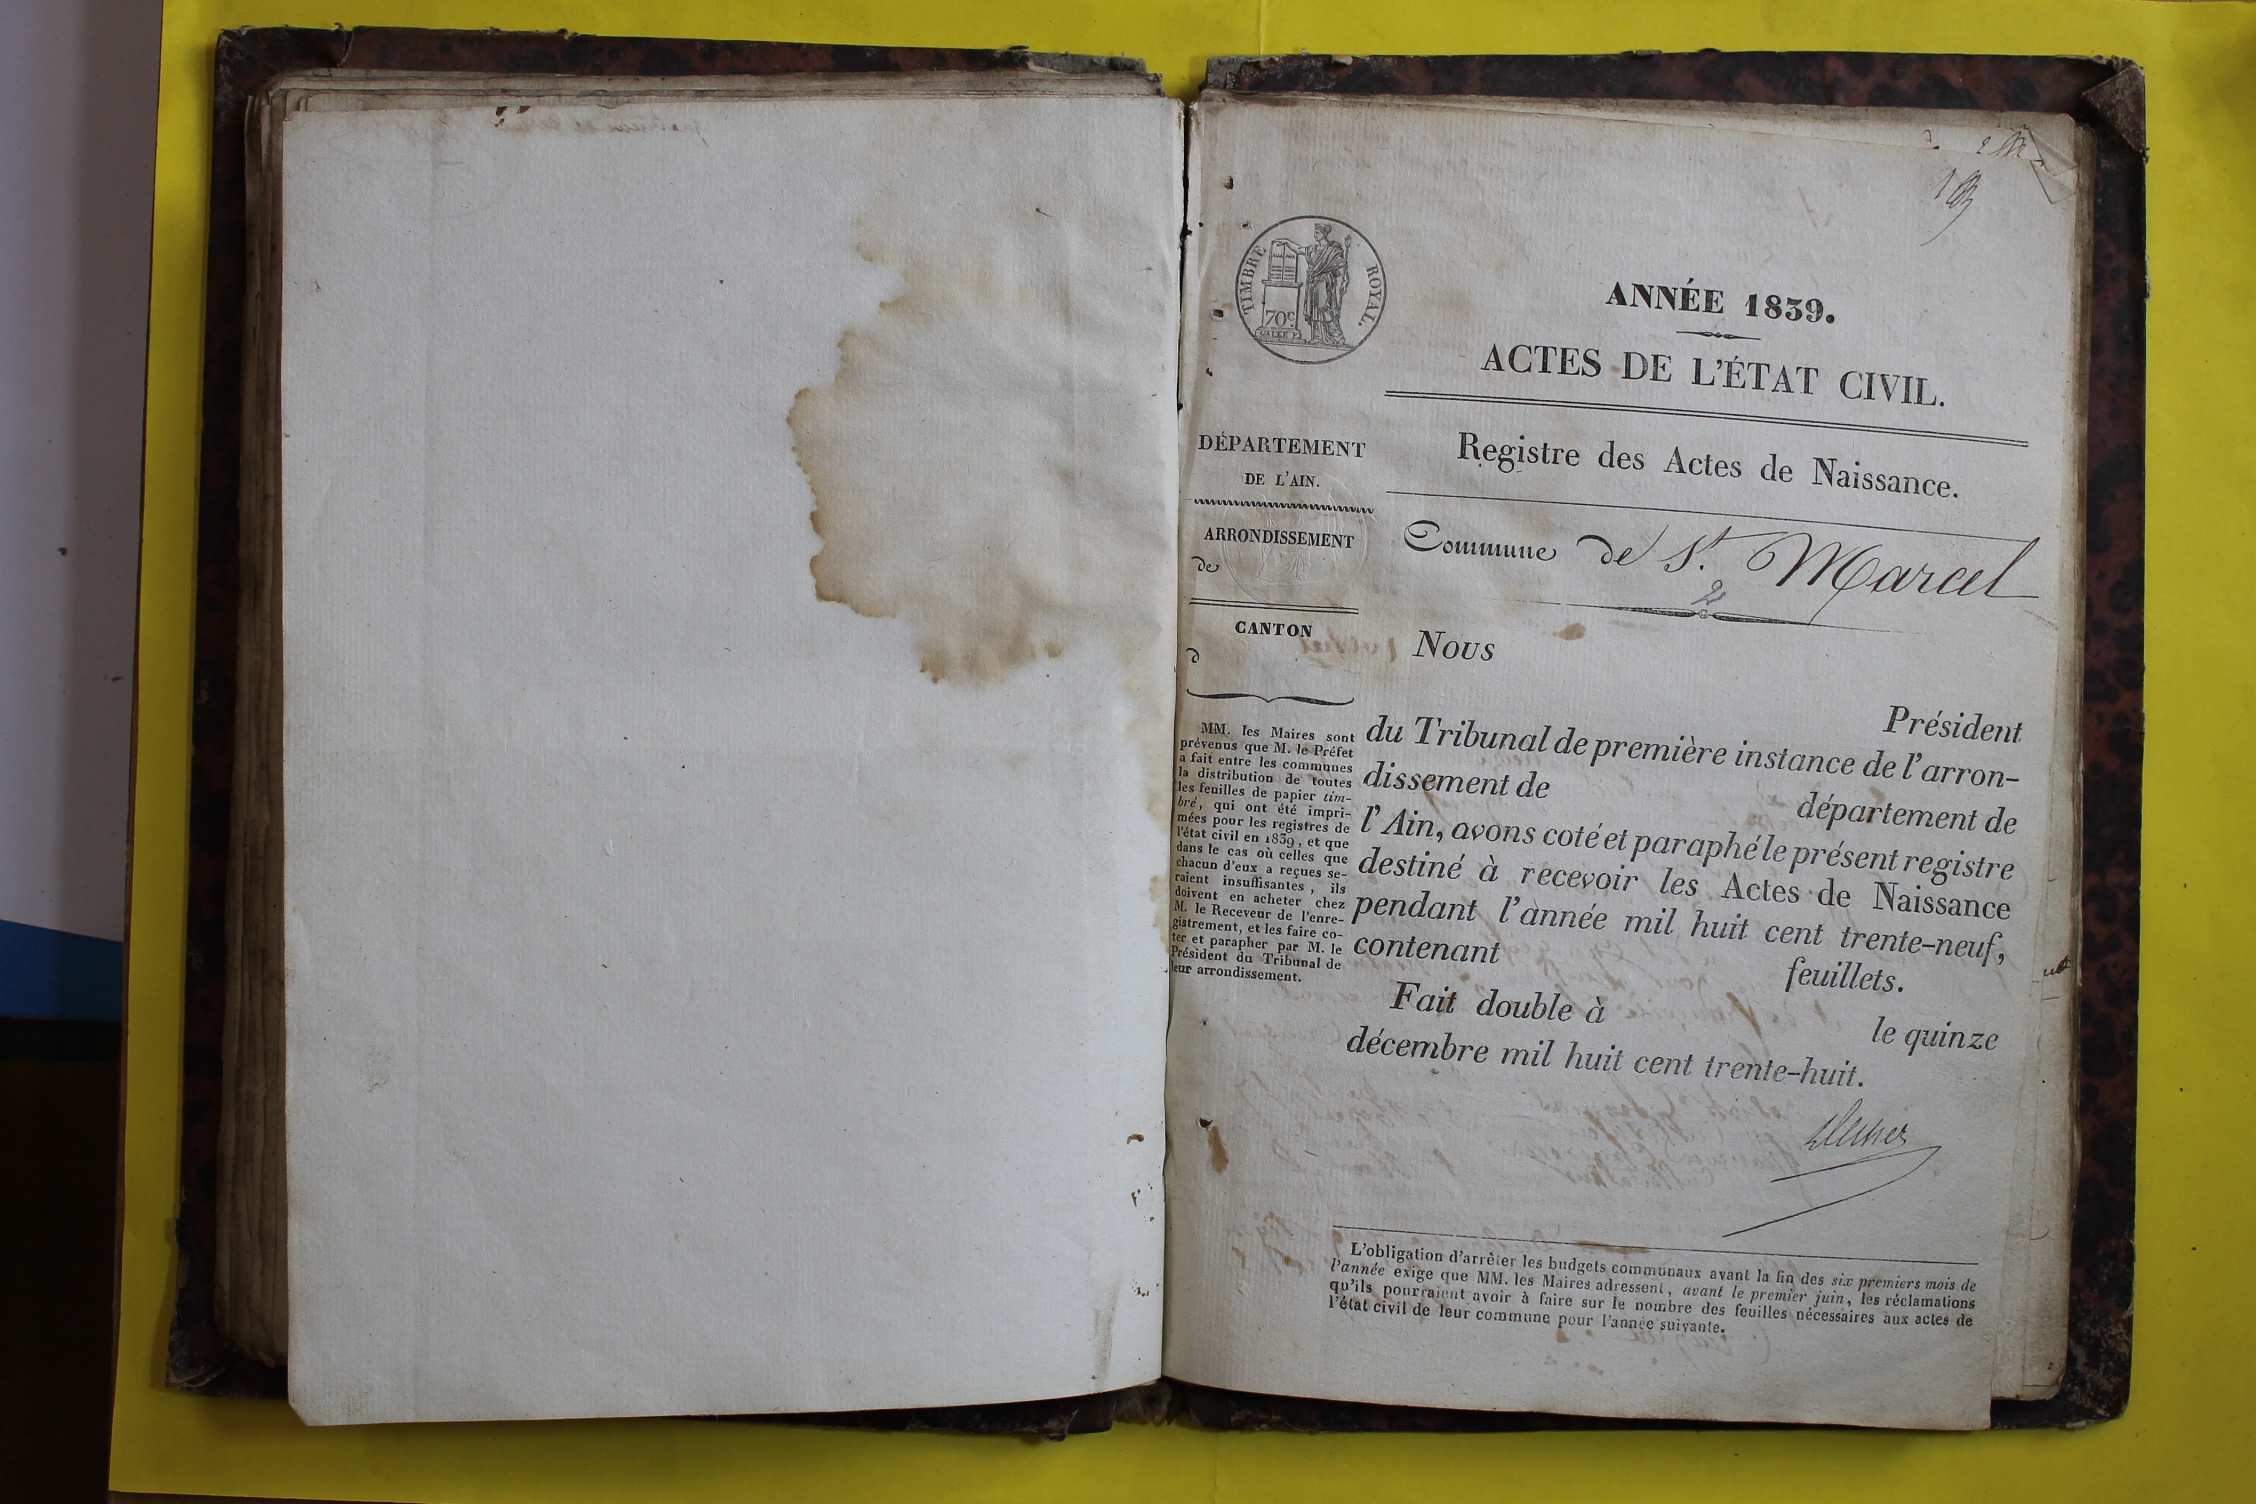 TIMBRE ROYAL.
70c.
ANNÉE 1839.
ACTES DE L'ÉTAT CIVIL.
Registre des Actes de Naissance.
Commune de St. Marcel
2
DÉPARTEMENT
DE L'AIN.
ARRONDISSEMENT
de
CANTON
d
MM. les Maires sont
prévenus que M. le Préfet
a fait entre les communes
la distribution de toutes
les feuilles de papier tim-
bré, qui ont été impri-
mées pour les registres de
l'état civil en 1839, et que
dans le cas où celles que
chacun d'eux a reçues se-
raient insuffisantes, ils
doivent en acheter chez
M. le Receveur de l'enre-
gistrement, et les faire co-
ter et parapher par M. le
Président du Tribunal de
leur arrondissement.
Nous
Président
du Tribunal de première instance de l'arron-
dissement de département de
l'Ain, avons coté et paraphé le présent registre
destiné à recevoir les Actes de Naissance
pendant l'année mil huit cent trente-neuf,
contenant feuillets.
Fait double à le quinze
décembre mil huit cent trente-huit.
L'obligation d'arrêter les budgets communaux avant la fin des six premiers mois de
l'année exige que MM. les Maires adressent, avant le premier juin, les réclamations
qu'ils pourraient avoir à faire sur le nombre des feuilles nécessaires aux actes de
l'état civil de leur commune pour l'année suivante.